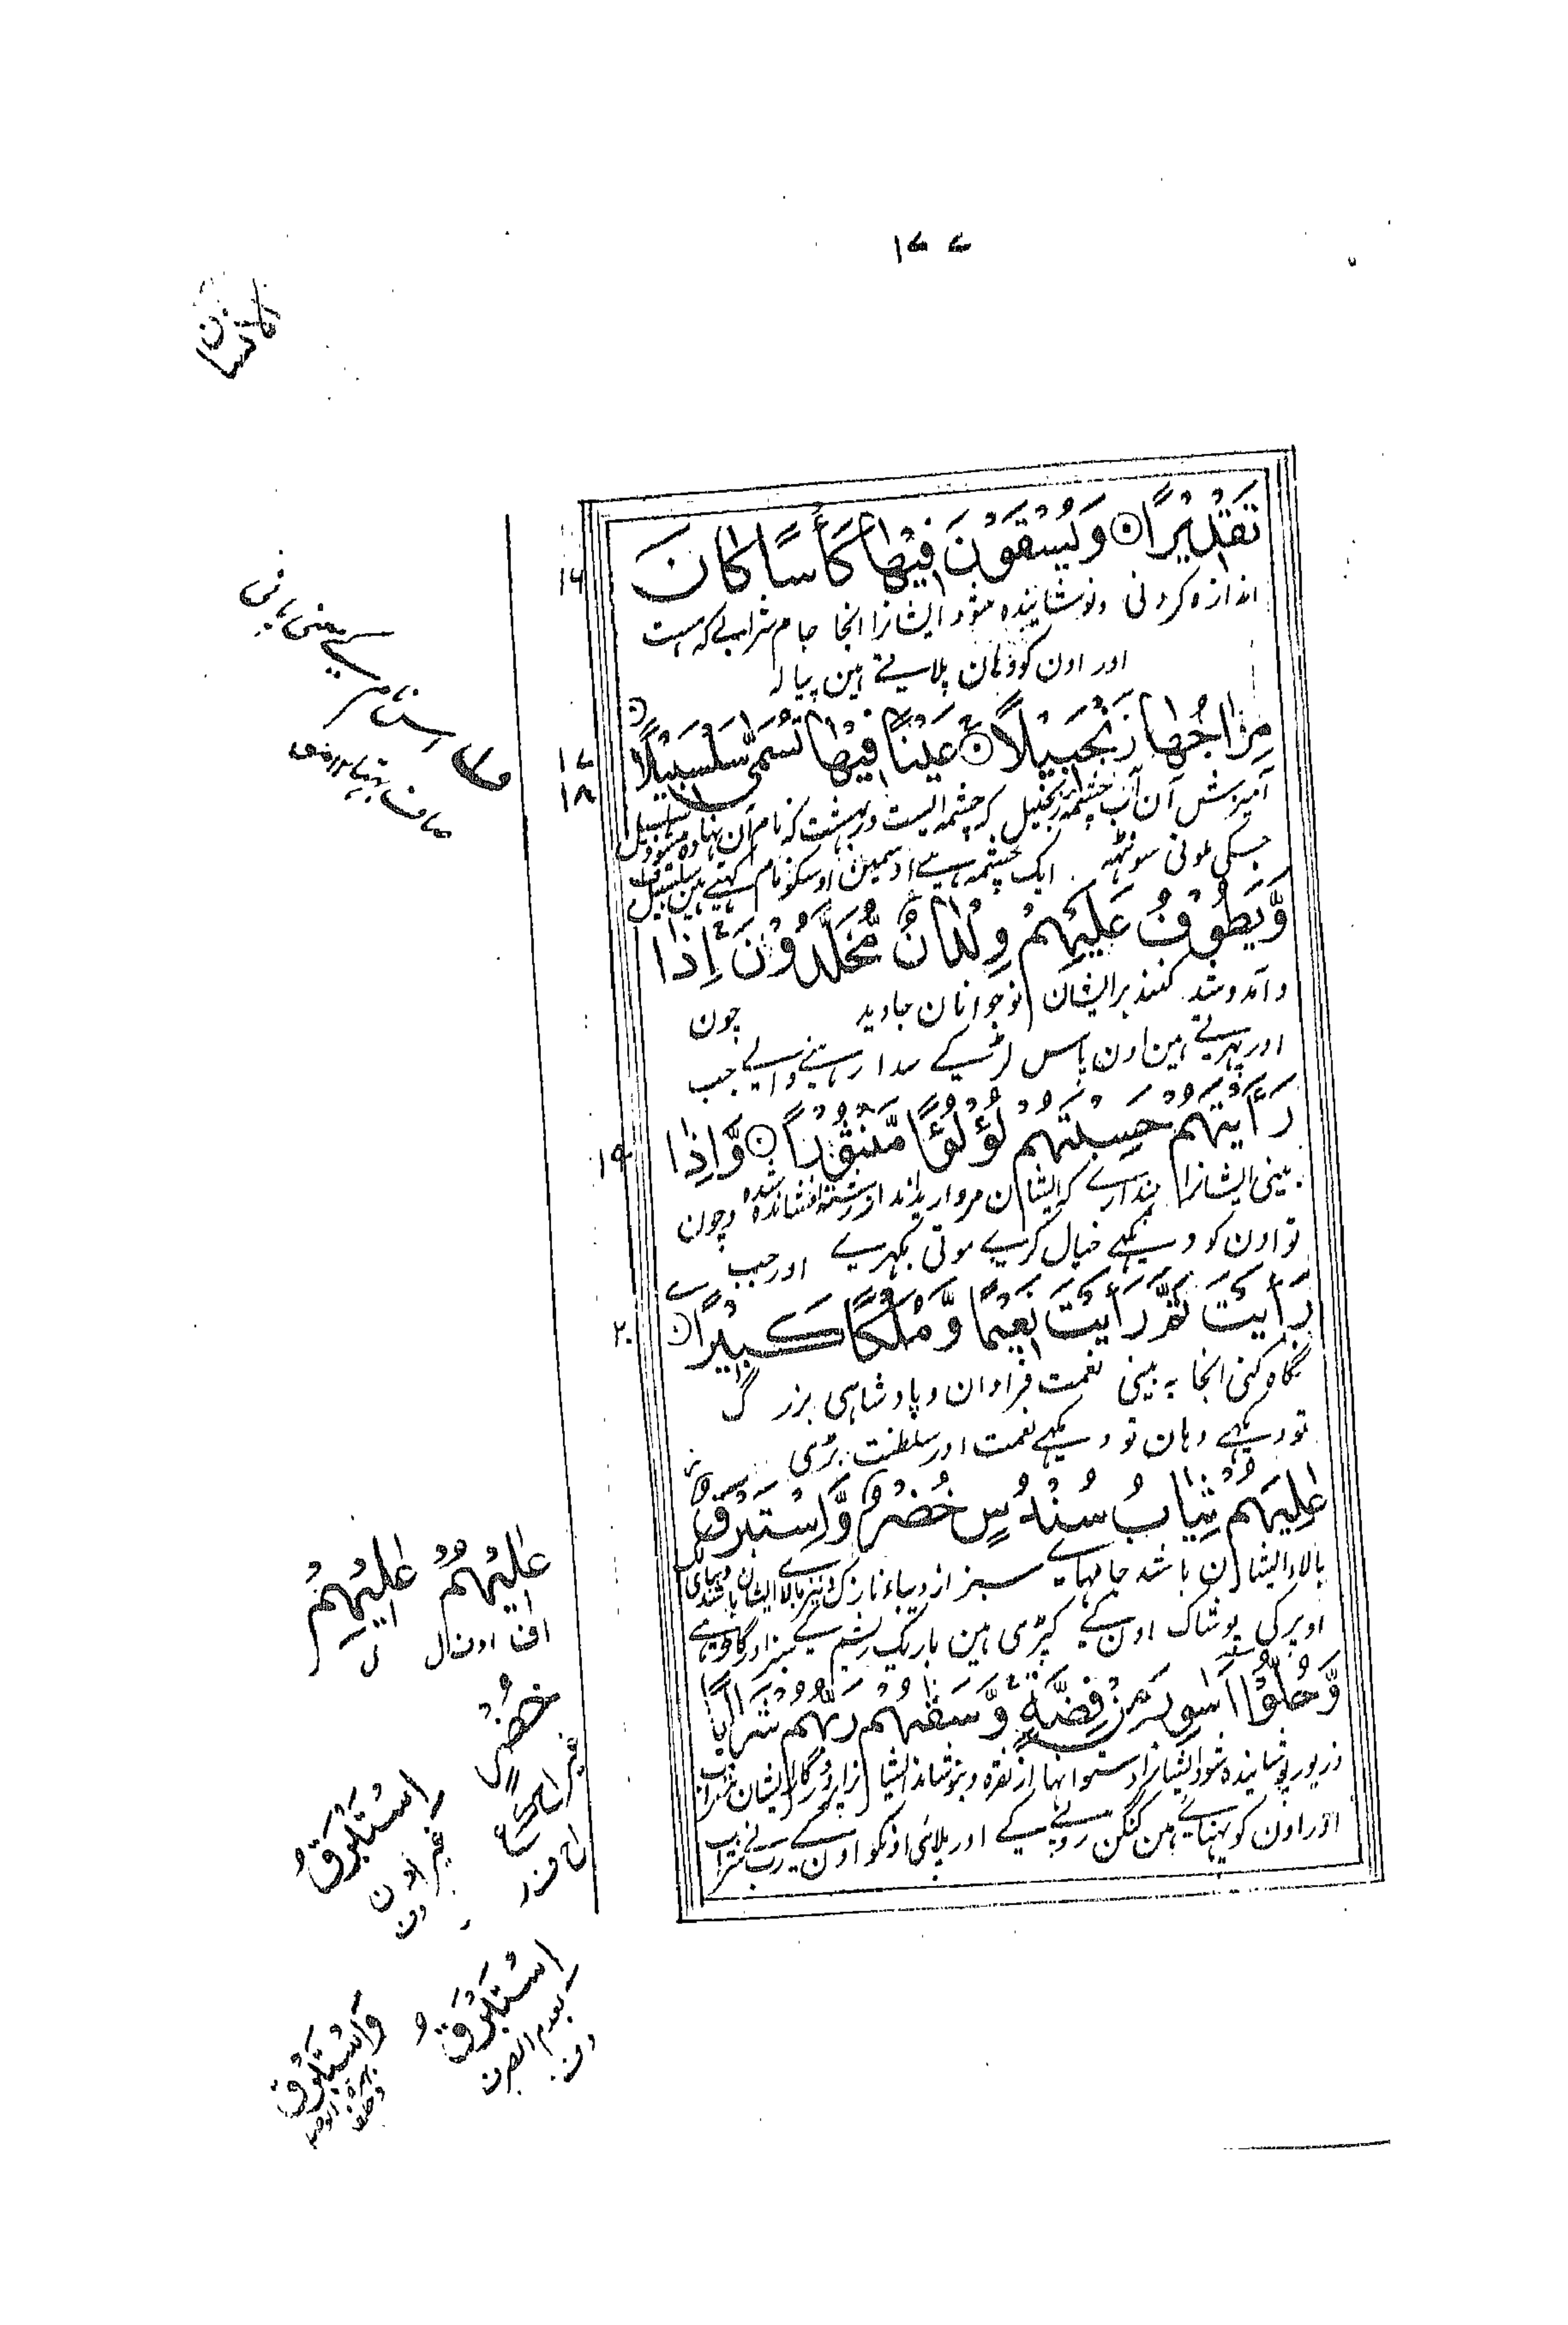 ۱۷۷
تَقْدِيْرًا ۝ وَيُسْقَوْنَ فِيْهَا كَأْسًا كَانَ
۱۶
اندازہ کردنی ونوشانیدہ شود ایشانرا انجا جام شرابے کہ ہست
اور اون کو وہان پلاتے ہین پیالہ
مِزَاجُهَا زَنْجَبِيْلًا ۝ عَيْنًا فِيْهَا تُسَمّٰى سَلْسَبِيْلًا ۝
۱۷
۱۸
آمیزش آن آب چشمہ زنجبیل کہ چشمہ ایست در بہشت کہ نام آن نہادہ میشود سلسبیل
جسکی ملونی سونٹھہ ایک چشمہ ہے اوسمین اوسکو نام کہتے ہین سلسبیل
وَّيَطُوْفُ عَلَيْهِمْ وِلْدَانٌ مُّخَلَّدُوْنَ اِذَا
وآمد وشد کنند بر ایشان نوجوانان جاوید چون
اور پہرتے ہین اون پاس لڑکے سدا رہنے والے جب
رَأَيْتَهُمْ حَسِبْتَهُمْ لُؤْلُؤًا مَّنْثُوْرًا ۝ وَّاِذَا
۱۹
بینی ایشانرا پندارے کہ ایشان مروارید اند از رشتہ افشاندہ شدہ وچون
تو اون کو دیکہے خیال کرے موتی بکہرے اور جب
رَأَيْتَ ثَمَّ رَأَيْتَ نَعِيْمًا وَّمُلْكًا كَبِيْرًا ۝
۲۰
نگاہ کنی انجا بہ بینی نعمت فراوان وپادشاہی بزرگ
تو دیکہے وہان تو دیکہے نعمت اور سلطنت بڑی
عٰلِيَهُمْ ثِيَابُ سُنْدُسٍ خُضْرٌ وَّاِسْتَبْرَقٌ
بالاء ایشان باشد جامہاے سبز از دیباء نازک ونیز بالاء ایشان باشد دیباے
اوپر کی پوشاک اون کے کپڑی ہین باریک ریشم کے سبز اور گاڑہے
وَّحُلُّوْٓا اَسَاوِرَ مِنْ فِضَّةٍ وَّسَقٰىهُمْ رَبُّهُمْ شَرَابًا
وزیور پوشانیدہ شود ایشانرا دستوانہا از نقرہ وبنوشاند ایشانرا پروردگار ایشان شراب
اور اون کو پہنائے ہین کنگن روپے کے اور پلائی اونکو اون کے رب نے شراب
عٰلِيْهُمْ عٰلِيْهِمْ
خُضْرٍ
اِسْتَبْرَقُ
اِسْتَبْرَقُ
بعدم الصرف
وَاسْتَبْرَقَ